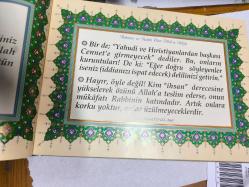 Bir de; "Yahudi ve Hıristiyanlardan başkası
Cennet'e girmeyecek" dediler. Bu, onların
kuruntuları! De ki: "Eğer doğru söyleyenler
iseniz (iddianızı ispat edecek) delilinizi getirin."
Hayır, öyle değil! Kim "ihsan" derecesine
yükselerek özünü Allah'a teslim ederse, onun
mükâfatı Rabbinin katındadır. Artık onlara
korku yoktur, onlar üzülmeyeceklerdir.